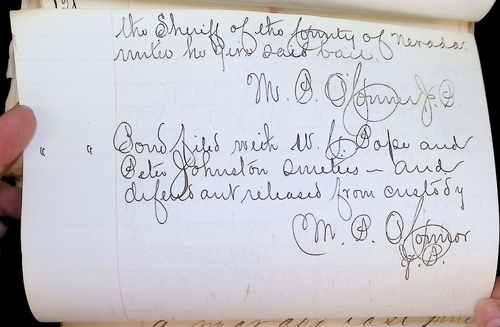 the Sheriff of the County of Nevada
until he give said bail.
M. B. O'Connor J. P.
" " Bond filed with W. C. Pope and
Peter Johnston sureties - and
defendant released from custody
M. B. O'Connor
J. P.